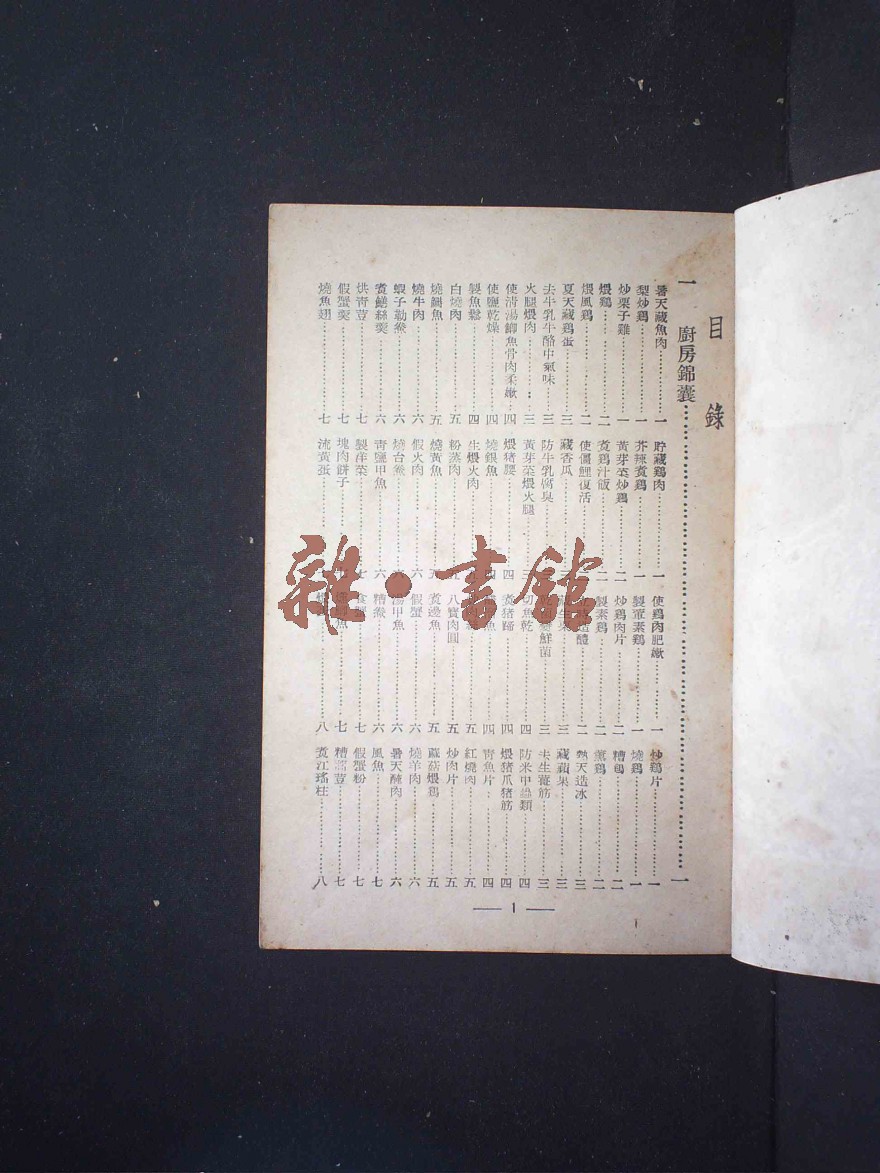 目錄
一 廚房錦囊……一
暑天藏魚肉……一 貯藏鷄肉……一 使鷄肉肥嫩……一 炒鷄片……一
梨炒鷄……一 芥辣煮鷄……一 製葷素鷄……一 燒鷄……一
炒栗子雞……一 黃芽菜炒鷄……二 炒鷄肉片……二 糟鷄……二
煨鷄……二 煮鷄汁飯……二 製素鷄……二 薰鷄……二
煨風鷄……二 使僵鯉復活…… 醴……二 熱天造冰……三
夏天藏鷄蛋……三 藏香瓜…… 生菜……三 藏蘋果……三
去牛乳牛酪中氣味……三 防牛乳腐臭…… 鮮菌……三 去生薤筋……三
火腿煨肉……三 黃芽菜煨火腿…… 切魚乾……四 防米中蟲類……四
使清湯鯽魚骨肉柔嫩……四 煨豬腰……四 煮豬蹄……四 煨豬爪豬筋……四
使鹽乾燥……四 燒銀魚……四 魚……四 青魚片……四
製魚鬆……四 生煨火肉…… ……五 紅燒肉……五
白燒肉……五 粉蒸肉……五 八寶肉圓……五 炒肉片……五
燒鯛魚……五 燒黃魚……五 煮邊魚……五 蘑菇煨鷄……五
燒牛肉……六 假火肉……六 假蟹……六 燒羊肉……六
蝦子勒鯗……六 燒台鯗……六 湯甲魚……六 暑天醃肉……六
煮鱔絲羹……六 青鹽甲魚……六 糟鯗……六 風魚……七
烘青荳……七 製洋菜……七 食蟹……七 假蟹粉……七
假蟹羹……七 塊肉餅子…… 魚……七 糟 荳……七
燒魚翅……七 流黃蛋…… ……八 煮江瑤柱……八
— 1 —
雜·書館